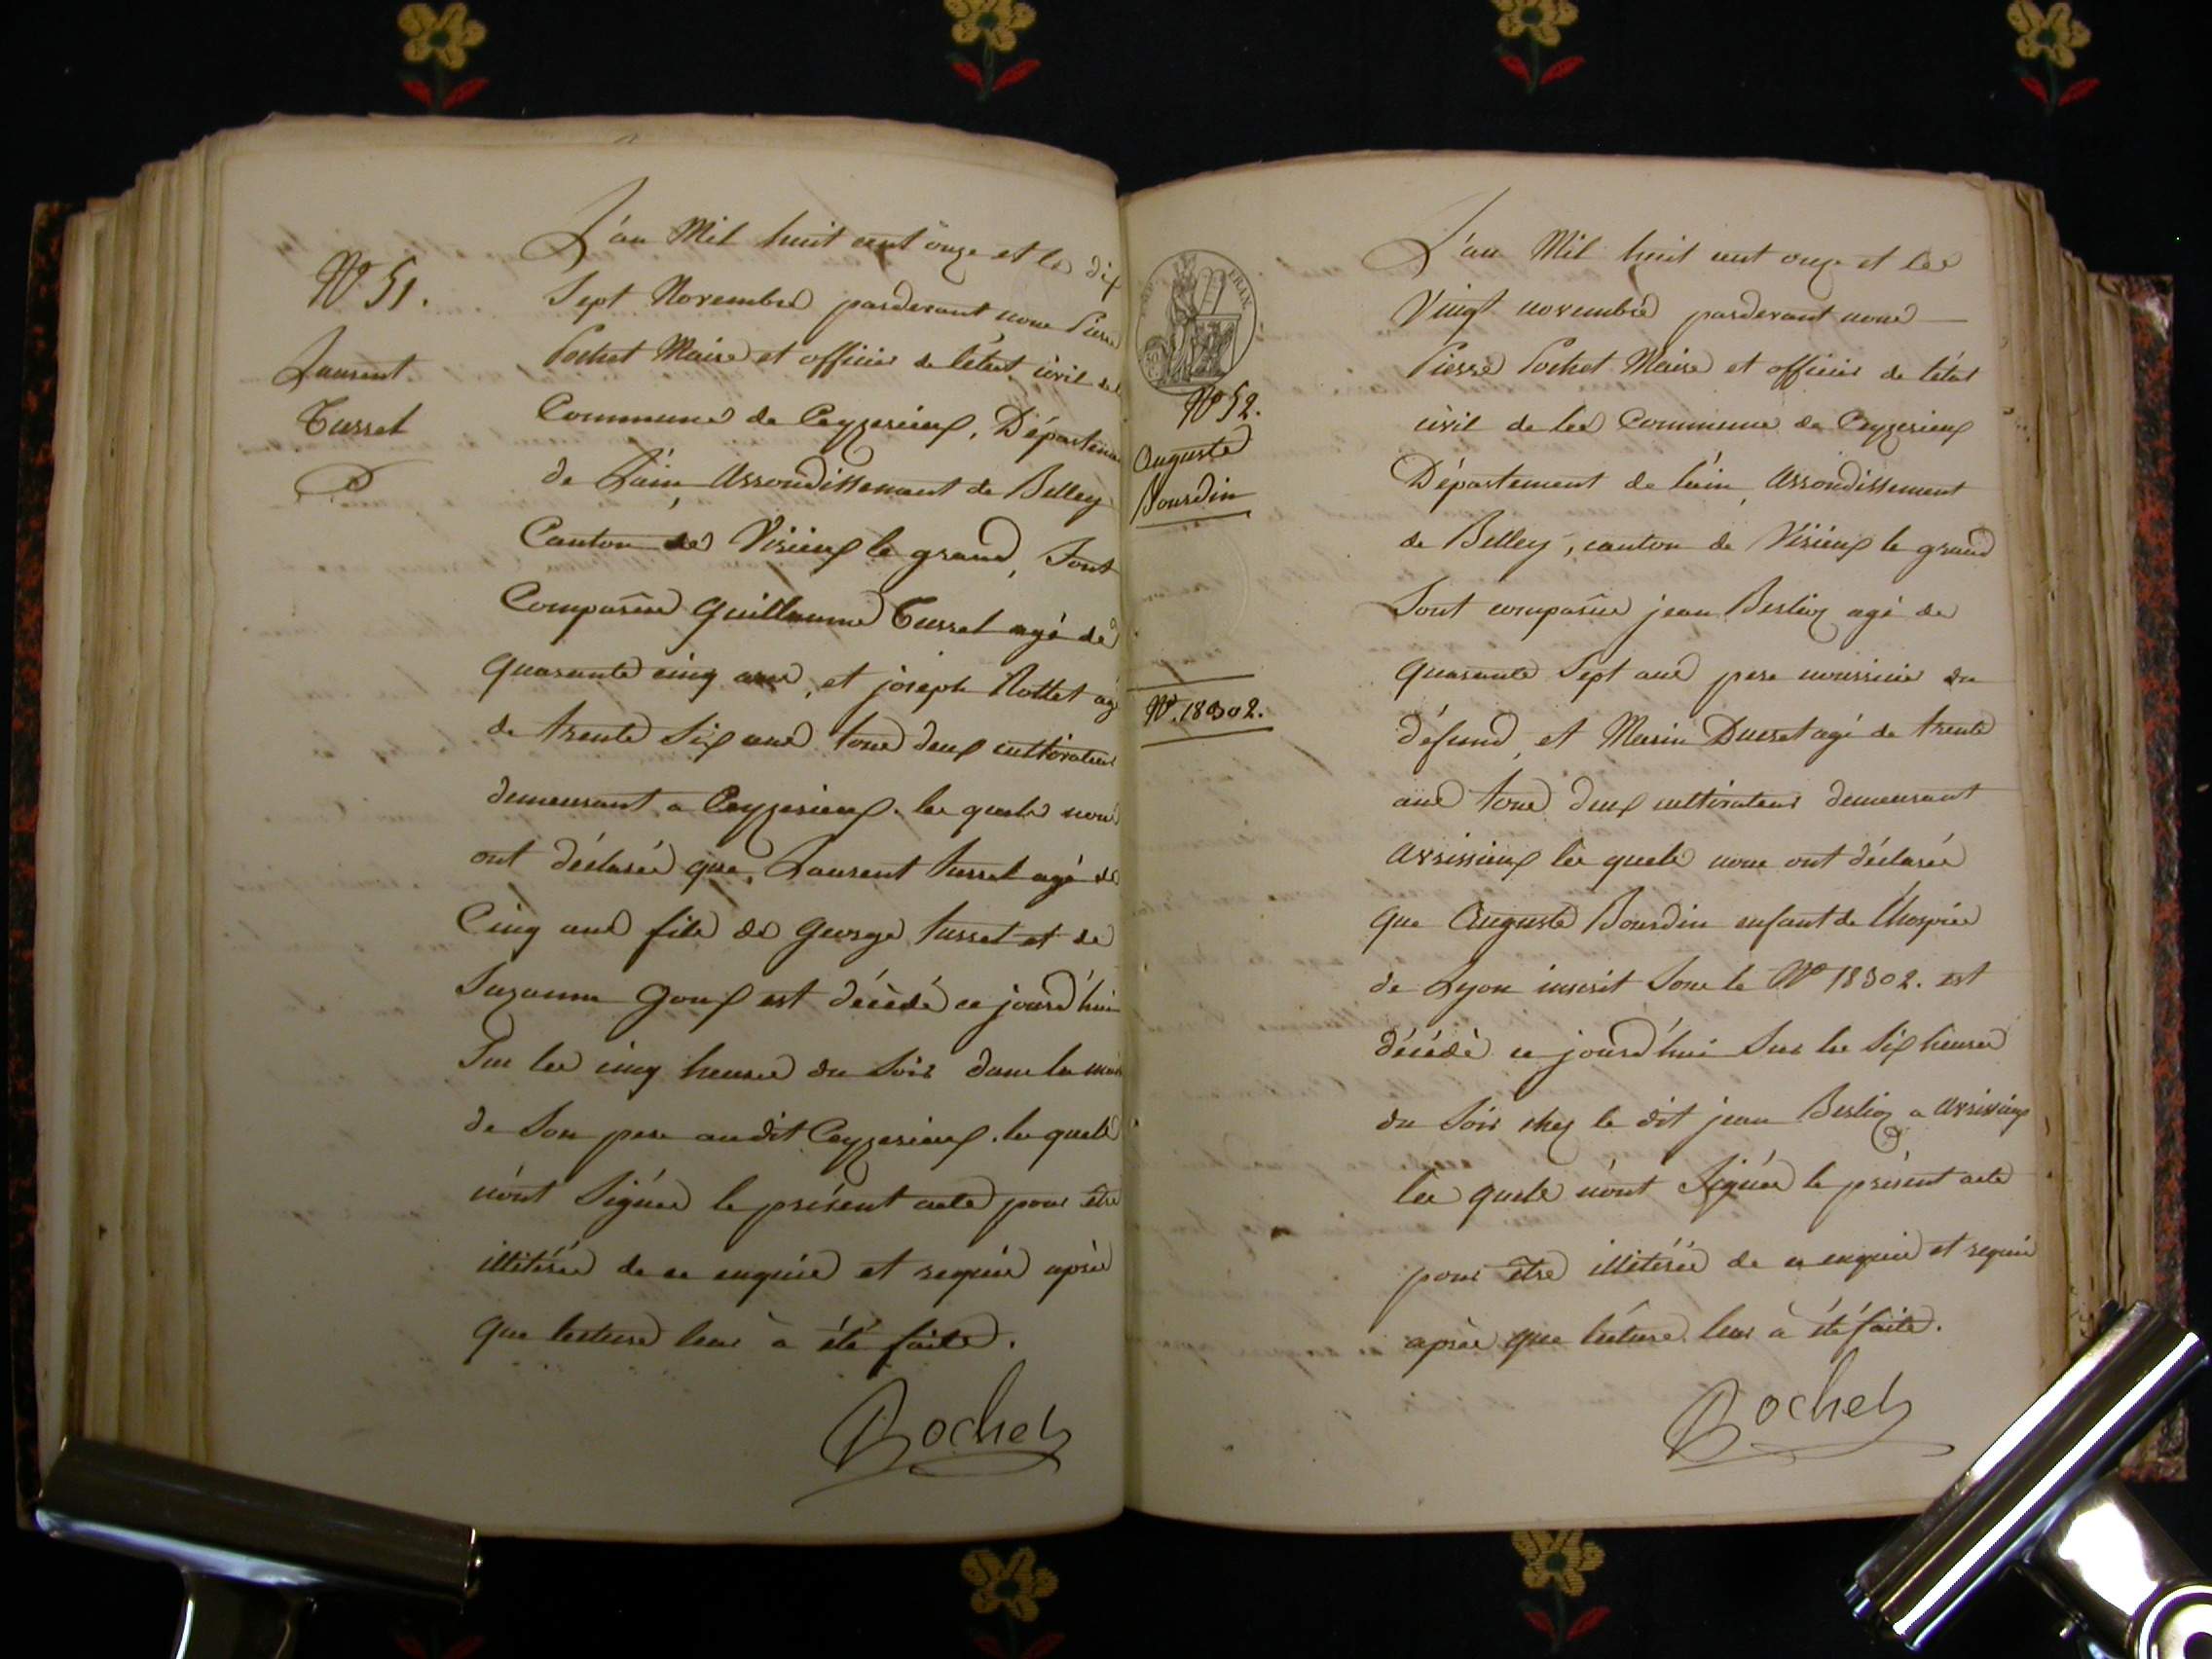 N° 51.
Laurent
Tusset
D
L'an Mil huit cent onze et le dix
Sept Novembre pardevant nous Pierre
Pochet Maire et officier de l'état civil de
Commune de Ceyzerieux, Départeme
de L'ain, Arrondissement de Belley
Canton de Virieux le grand, Sont
Comparûs Guillaume Tusset agé de
quarante cinq ans, et joseph Rottet agé
de trente Six ans tous deux cultivateurs
demeurant a Ceyzerieux. les quels nous
ont déclarés que, Laurent tusset agé de
Cinq ans fils de George tusset et de
Suzanne Goux est décèdé ce jourd'hui
Sur les cinq heures du Soir dans la mais
de Son pere au dit Ceyzerieux. les quels
n'ont Signés le présent acte pour être
illitérés de ce enquis et requis après
que lecture leur à été faite.
Pochet
FRAN
N° 52.
Auguste
Bourdin
N°. 18302.
L'an Mil huit cent onze et les
Vingt novembre pardevant nous
Pierre Pochet Maire et officier de l'état
civil de la Commune de Ceyzerieux
Département de l'ain, Arrondissement
de Belley, canton de Virieux le grand
Sont comparûs jean Berlioz agé de
quarante Sept ans pere nourricier du
défund, et Marin Ducret agé de trente
ans tous deux cultivateurs demeurant
avrissieux les quels nous ont déclarés
que Auguste Bourdin enfant de l'hospice
de Lyon inscrit Sous le N° 18302. est
décédé ce jourd'hui Sur les Six heures
du Soir chez le dit jean Berlioz a avrissieux
les quels n'ont Signés le présent acte
pour être illitérés de ce enquis et requis
après que lécture leur à été faite.
Pochet